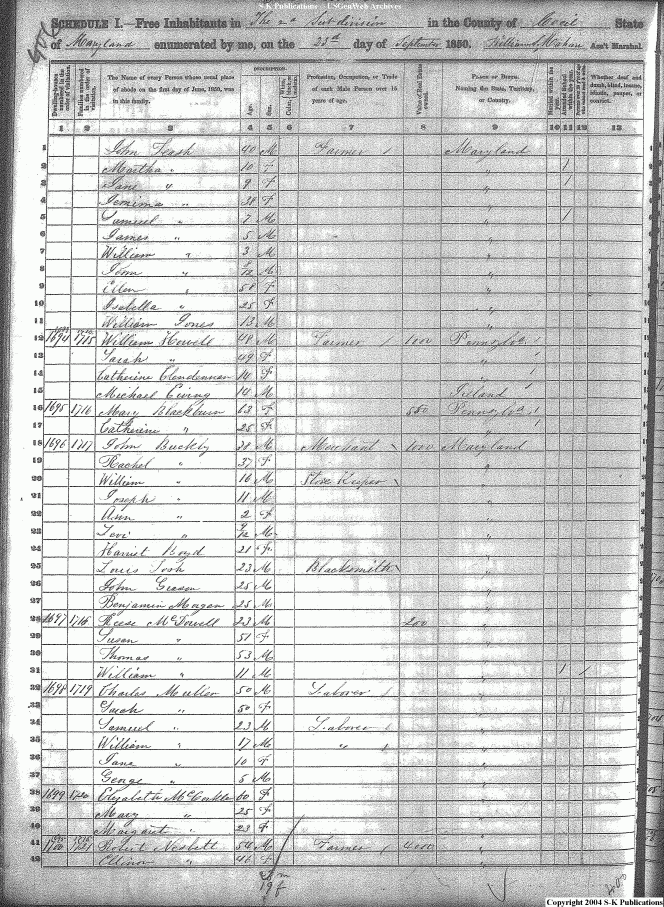 S-K Publications - USGenWeb Archives
SCHEDULE I.—Free Inhabitants in The 2nd Sub division in the County of Cecil State
of Maryland enumerated by me, on the 25th day of September 1850. Ass't Marshal.
Dwelling-houses numbered in the order of visitation.
Families numbered in the order of visitation.
The Name of every Person whose usual place of abode on the first day of June, 1850, was in this family.
DESCRIPTION.
Age.
Sex.
Color,
Profession, Occupation, or Trade of each Male Person over 15 years of age.
Value of Real Estate owned.
PLACE OF BIRTH. Naming the State, Territory, or Country.
Married within the year.
Attended School within the year.
Whether deaf and dumb, blind, insane, idiotic, pauper, or convict.
1 2 3 4 5 6 7 8 9 10 11 12 13
1 John 40 M Farmer / Maryland
2 Martha " 10 F " /
3 Jane " 9 F " /
4 Jemima " 38 F "
5 Samuel " 7 M " /
6 James " 5 M "
7 William " 3 M "
8 John " /12 M "
9 Ellen " 58 F "
10 Isabella " 25 F "
11 William Jones 13 M "
12 1694 1715 William Howell 48 M Farmer / 1000 Pennsylva /
13 Sarah " 49 F " /
14 Catherine Clendennan 14 F " /
15 Michael Ewing 14 M Ireland /
16 1695 1716 Mary Blackburn 63 F 550 Pennsylva /
17 Catherine " 25 F "
18 1696 1717 John Buckly 38 M Merchant 1000 Maryland
19 Rachel " 37 F "
20 William " 16 M Store Keeper "
21 Joseph " 11 M "
22 Ann " 2 F "
23 Levi " 9/12 M "
24 Harriet Boyd 21 F "
25 Louis 23 M Blacksmith "
26 John 25 M "
27 Benjamin Morgan 25 M "
28 1697 1718 Reese McDowell 23 M 200 "
29 Susan " 51 F "
30 Thomas " 53 M "
31 William " 11 M " / /
32 1698 1719 Charles 50 M Laborer / "
33 Sarah " 50 F "
34 Samuel " 23 M Laborer / "
35 William " 17 M " / "
36 Jane " 10 F "
37 George " 5 M "
38 1699 1720 Elizabeth 60 F "
39 Mary " 25 F "
40 Margaret " 23 F "
41 1700 1721 Robert Nesbett 54 M Farmer / 4000 "
42 Ellinor " 46 F "
m
19 f
Copyright 2004 S-K Publications